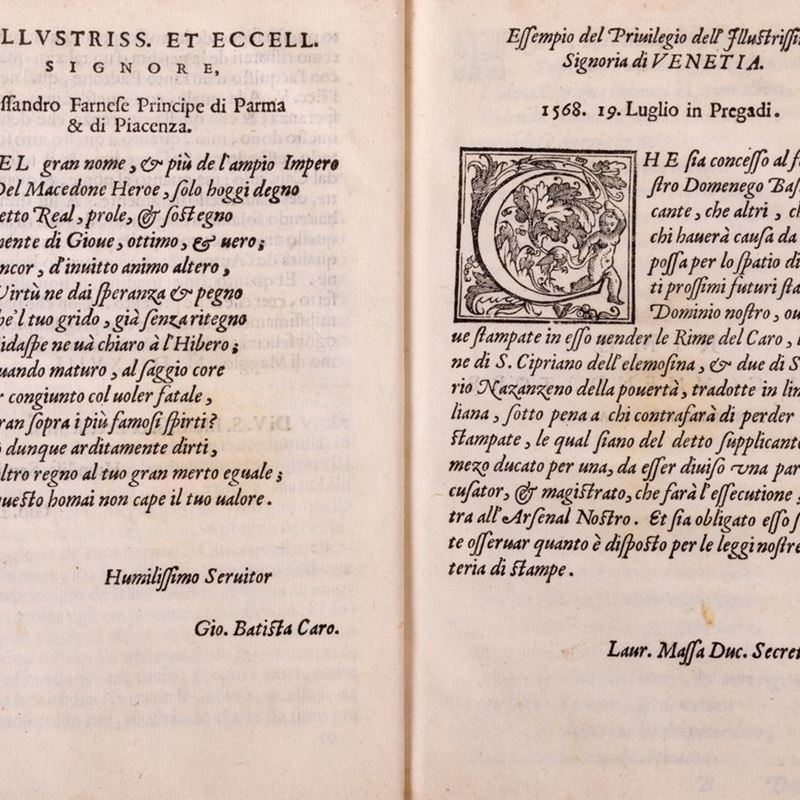 LLVSTRISS. ET ECCELL.
SIGNORE,
ſſandro Farneſe Principe di Parma
& di Piacenza.
EL gran nome, & più de l'ampio Impero
Del Macedone Heroe, ſolo hoggi degno
etto Real, prole, & ſoſtegno
mente di Gioue, ottimo, & uero;
ncor, d'inuitto animo altero,
Virtù ne dai ſperanza & pegno
he'l tuo grido, già ſenza ritegno
idaſpe ne uà chiaro à l'Hibero;
uando maturo, al ſaggio core
r congiunto col uoler fatale,
ran ſopra i più famoſi ſpirti?
ò dunque arditamente dirti,
ltro regno al tuo gran merto eguale;
ueſto homai non cape il tuo ualore.
Humiliſſimo Seruitor
Gio. Batiſta Caro.
Eſſempio del Priuilegio dell' Illuſtriſſi
Signoria di VENETIA.
1568. 19. Luglio in Pregadi.
CHE ſia conceſſo al f
ſtro Domenego Baſ
cante, che altri, ch
chi hauerà cauſa da
poſſa per lo ſpatio di
ti proſſimi futuri ſta
Dominio noſtro, ou
ue ſtampate in eſſo uender le Rime del Caro, l
ne di S. Cipriano dell'elemoſina, & due di S
rio Nazanzeno della pouertà, tradotte in lin
liana, ſotto pena a chi contrafarà di perder
ſtampate, le qual ſiano del detto ſupplicant
mezo ducato per una, da eſſer diuiſo vna par
cuſator, & magiſtrato, che farà l'eſſecutione,
tra all'Arſenal Noſtro. Et ſia obligato eſſo ſ
te oſſeruar quanto è diſpoſto per le leggi noſtre
teria di ſtampe.
Laur. Maſſa Duc. Secret